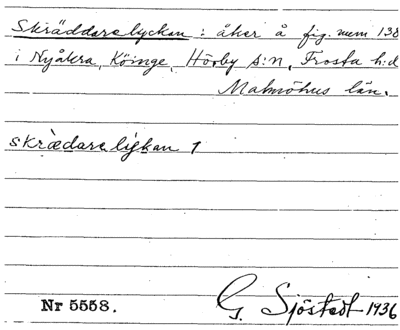 Skräddarelyckan: åker å fig. num 138
i Nyåkra, Köinge, Hörby s:n, Frosta h:d
Malmöhus län.
skrædare lykan 1
Nr 5558.
G. Sjöstedt 1936